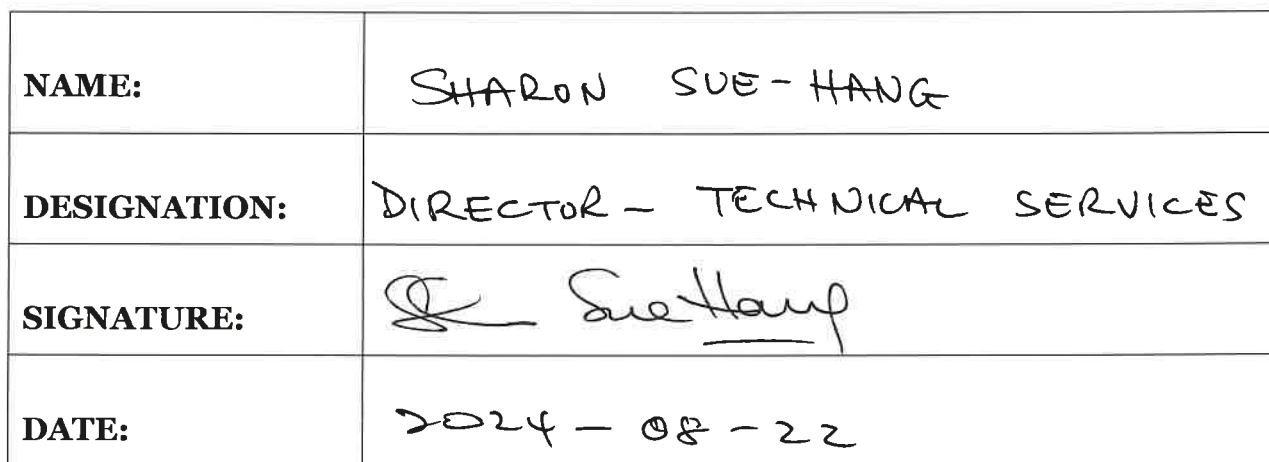 NAME: SHARON SUE-HANG
DESIGNATION: DIRECTOR - TECHNICAL SERVICES
SIGNATURE: Sue Hang
DATE: 2024-08-22